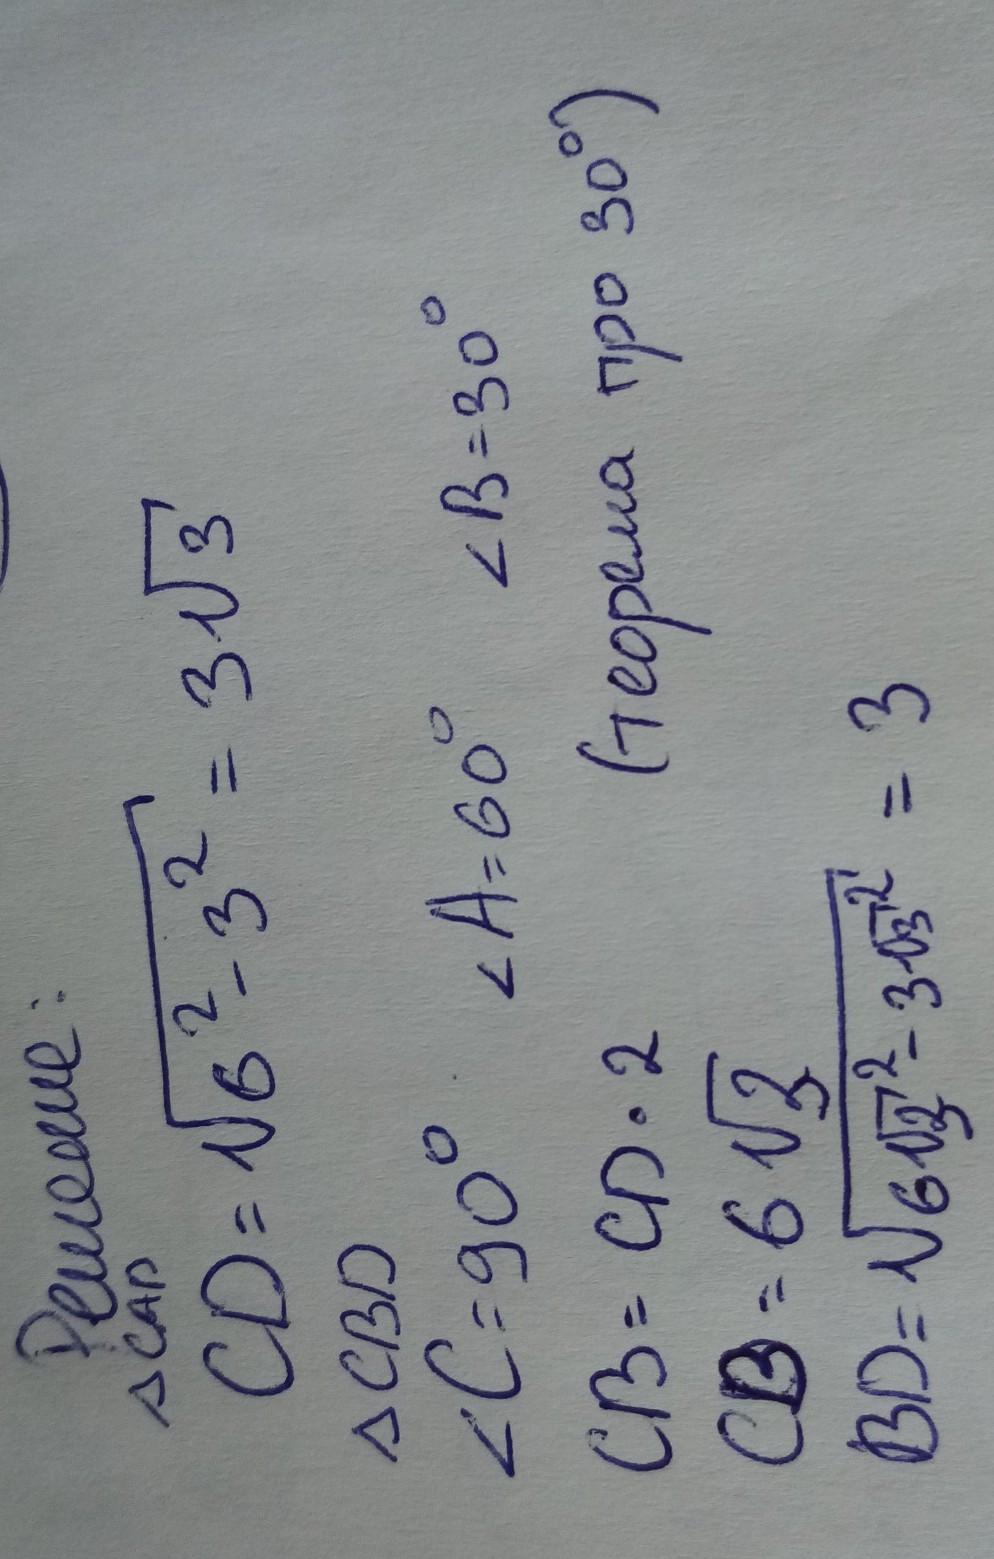 Решение:
△CAD
CD = √6² - 3² = 3√3
△CBD
<C = 90° <A = 60° <B = 30°
CB = CD · 2 (теорема про 30°)
CB = 6√3
BD = √6√3² - 3√3² = 3